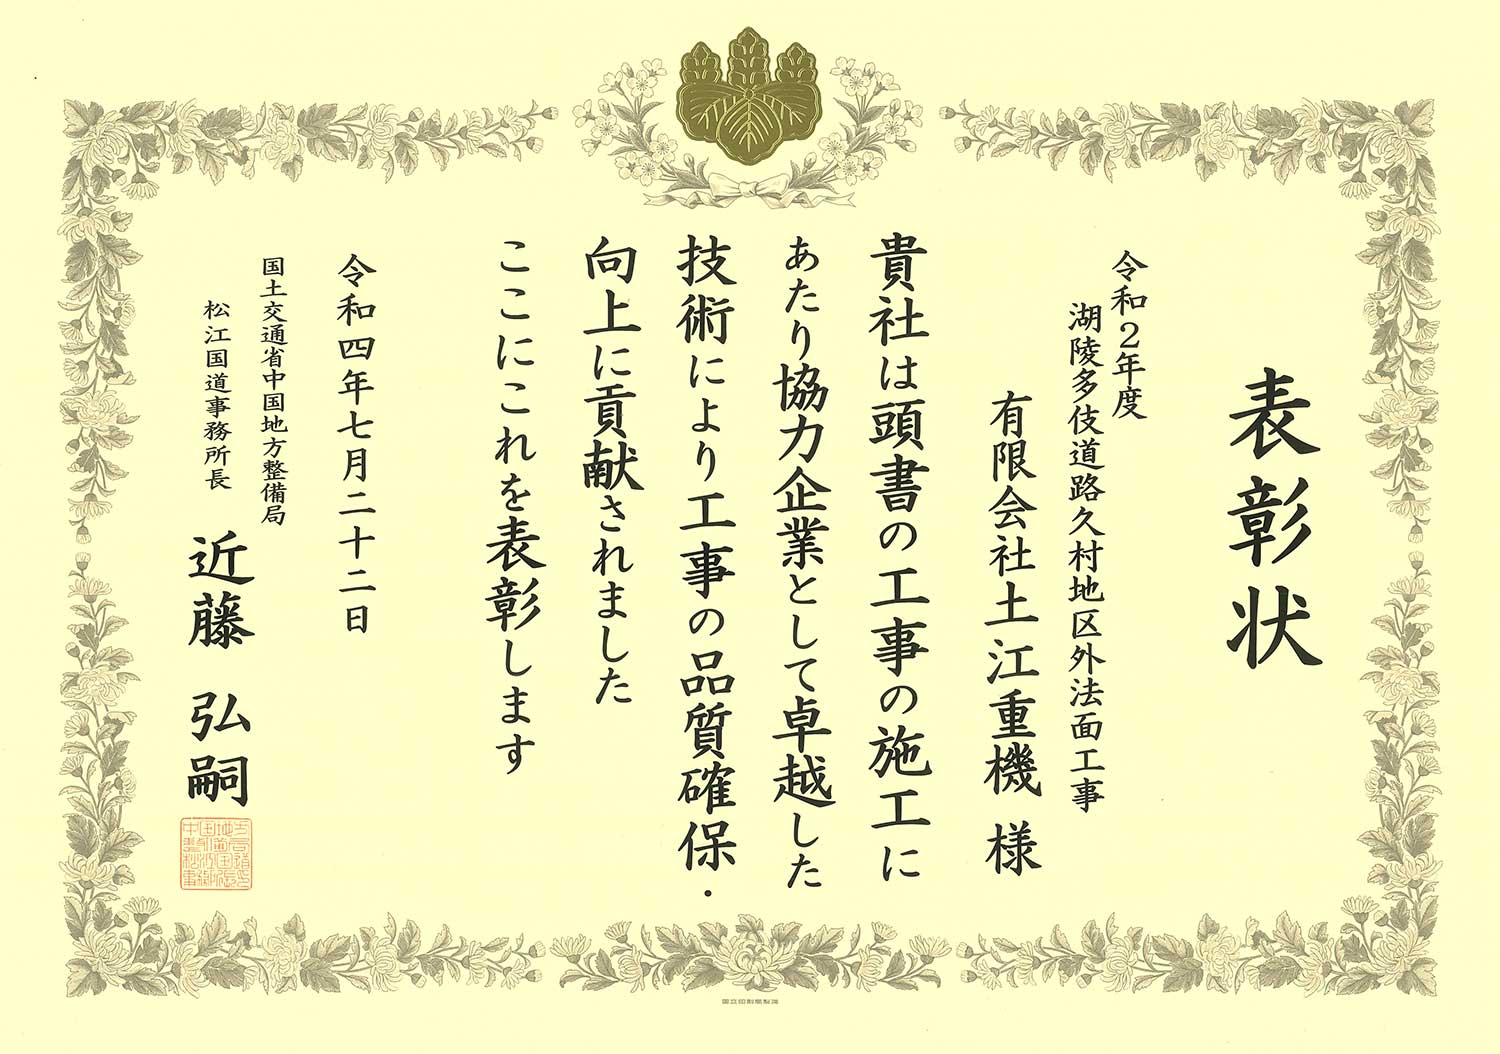 表彰状
令和２年度
湖陵多伎道路久村地区外法面工事
有限会社土江重機 様
貴社は頭書の工事の施工に
あたり協力企業として卓越した
技術により工事の品質確保・
向上に貢献されました
ここにこれを表彰します
令和四年七月二十二日
国土交通省中国地方整備局
松江国道事務所長
近藤 弘嗣
国立印刷局製造